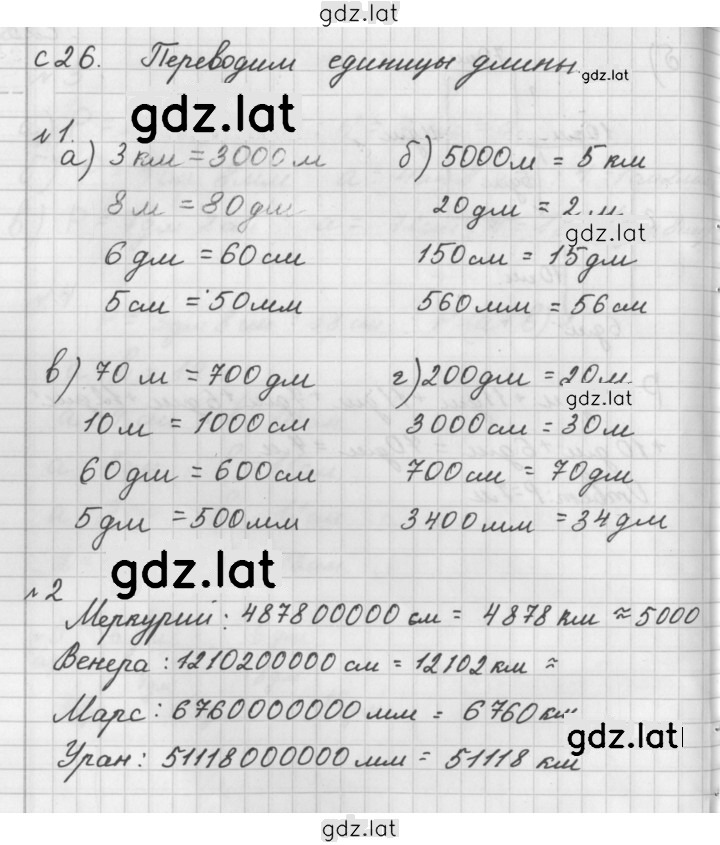 gdz.lat
с 26. Переводим единицы длины.
gdz.lat
gdz.lat
№ 1.
а) 3 км = 3000 м
8 м = 80 дм
6 дм = 60 см
5 см = 50 мм
б) 5000 м = 5 км
20 дм = 2 м
gdz.lat
150 см = 15 дм
560 мм = 56 см
в) 70 м = 700 дм
10 м = 1000 см
60 дм = 600 см
5 дм = 500 мм
г) 200 дм = 20 м
gdz.lat
3000 см = 30 м
700 см = 70 дм
3400 мм = 34 дм
gdz.lat
№ 2
Меркурий: 487800000 см = 4878 км ≈ 5000
Венера: 1210200000 см = 12102 км ≈
Марс: 6760000000 мм = 6760 км
gdz.lat
Уран: 51118000000 мм = 51118 км
gdz.lat